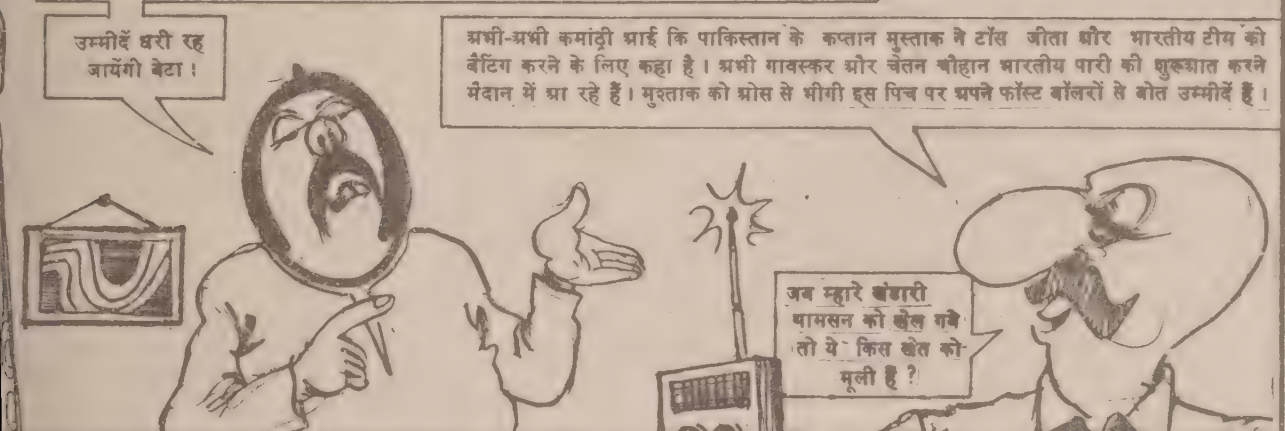 उम्मीदें धरी रह
जायेंगी बेटा !
अभी-अभी कमांट्री आई कि पाकिस्तान के कप्तान मुस्ताक ने टॉस जीता और भारतीय टीम को
बैटिंग करने के लिए कहा है । अभी गावस्कर और चेतन चौहान भारतीय पारी की शुरूआत करने
मैदान में आ रहे हैं । मुश्ताक को ओस से भीगी इस पिच पर अपने फॉस्ट बॉलरों से बोत उम्मीदें हैं ।
जब म्हारे खंडारी
थामसन को खेल गये
तो ये किस खेत की
मूली हैं ?